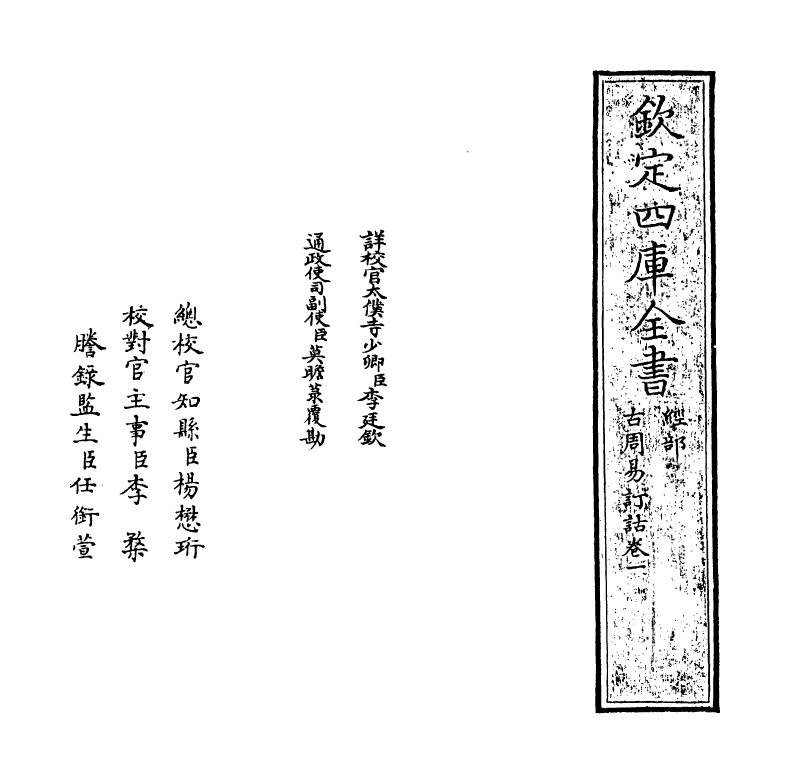 欽定四庫全書
經部
古周易訂詁卷一
詳校官太僕寺少卿臣李廷欽
通政使司副使臣莫瞻菉覆勘
總校官知縣臣楊懋珩
校對官主事臣李
謄錄監生臣任銜萱